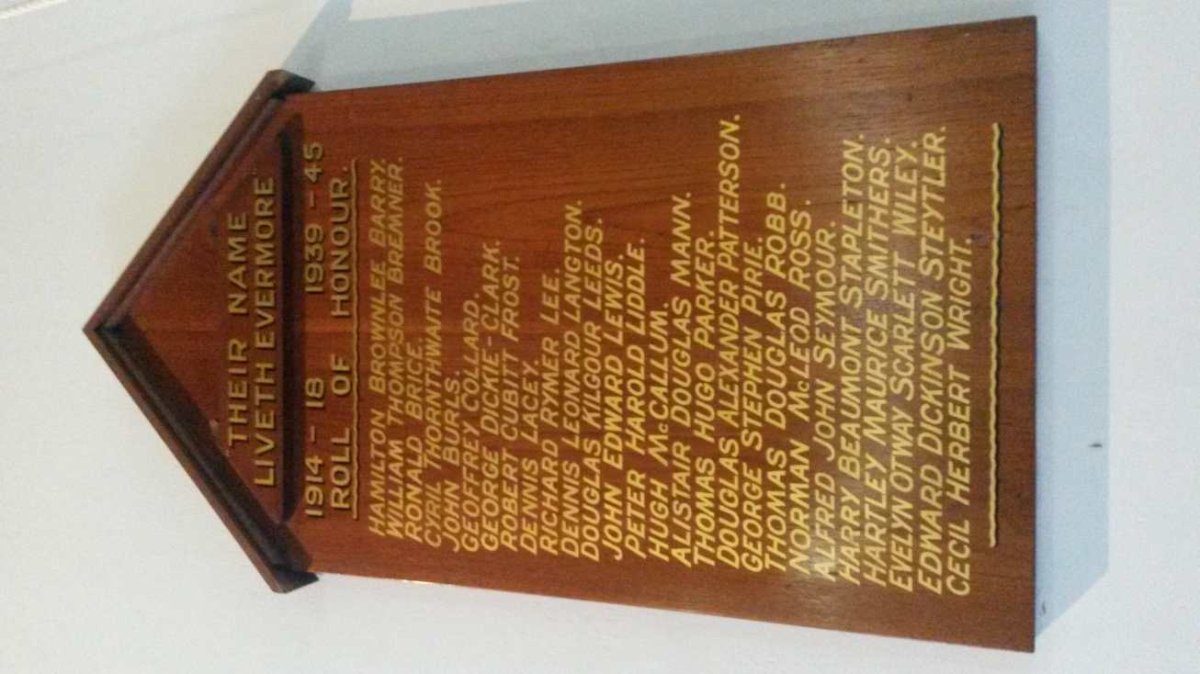 THEIR NAME
LIVETH EVERMORE
1914 - 18 1939 - 45
ROLL OF HONOUR.
HAMILTON BROWNLEE BARRY.
WILLIAM THOMPSON BREMNER.
RONALD BRICE.
CYRIL THORNTHWAITE BROOK.
JOHN BURLS.
GEOFFREY COLLARD.
GEORGE DICKIE-CLARK.
ROBERT CUBITT FROST.
DENNIS LACEY.
RICHARD RYMER LEE.
DENNIS LEONARD LANGTON.
DOUGLAS KILGOUR LEEDS.
JOHN EDWARD LEWIS.
PETER HAROLD LIDDLE.
HUGH McCALLUM.
ALISTAIR DOUGLAS MANN.
THOMAS HUGO PARKER.
DOUGLAS ALEXANDER PATTERSON.
GEORGE STEPHEN PIRIE.
THOMAS DOUGLAS ROBB.
NORMAN McLEOD ROSS.
ALFRED JOHN SEYMOUR.
HARRY BEAUMONT STAPLETON.
HARTLEY MAURICE SMITHERS.
EVELYN OTWAY SCARLETT WILEY.
EDWARD DICKINSON STEYTLER.
CECIL HERBERT WRIGHT.